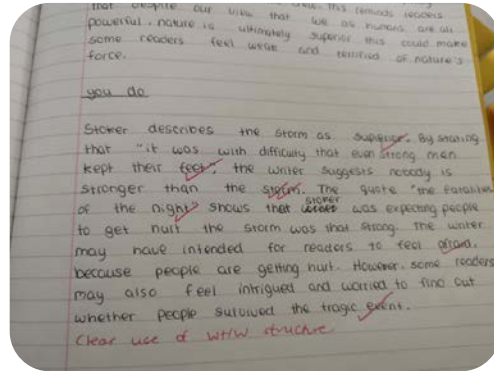 that despite our view that this reminds readers
powerful, nature is ultimately we as humans are all
some readers feel weak and superior this could make
force. terrified of nature's
you do
Stoker describes the storm as superior. By stating
that "it was with difficulty that even strong men
kept their feet", the writer suggests nobody is
stronger than the storm. The quote "the fatalities
of the night" shows that stoker was expecting people
to get hurt the storm was that strong. The writer
may have intended for readers to feel afraid,
because people are getting hurt. However, some readers
may also feel intrigued and worried to find out
whether people survived the tragic event.
Clear use of wHW structure